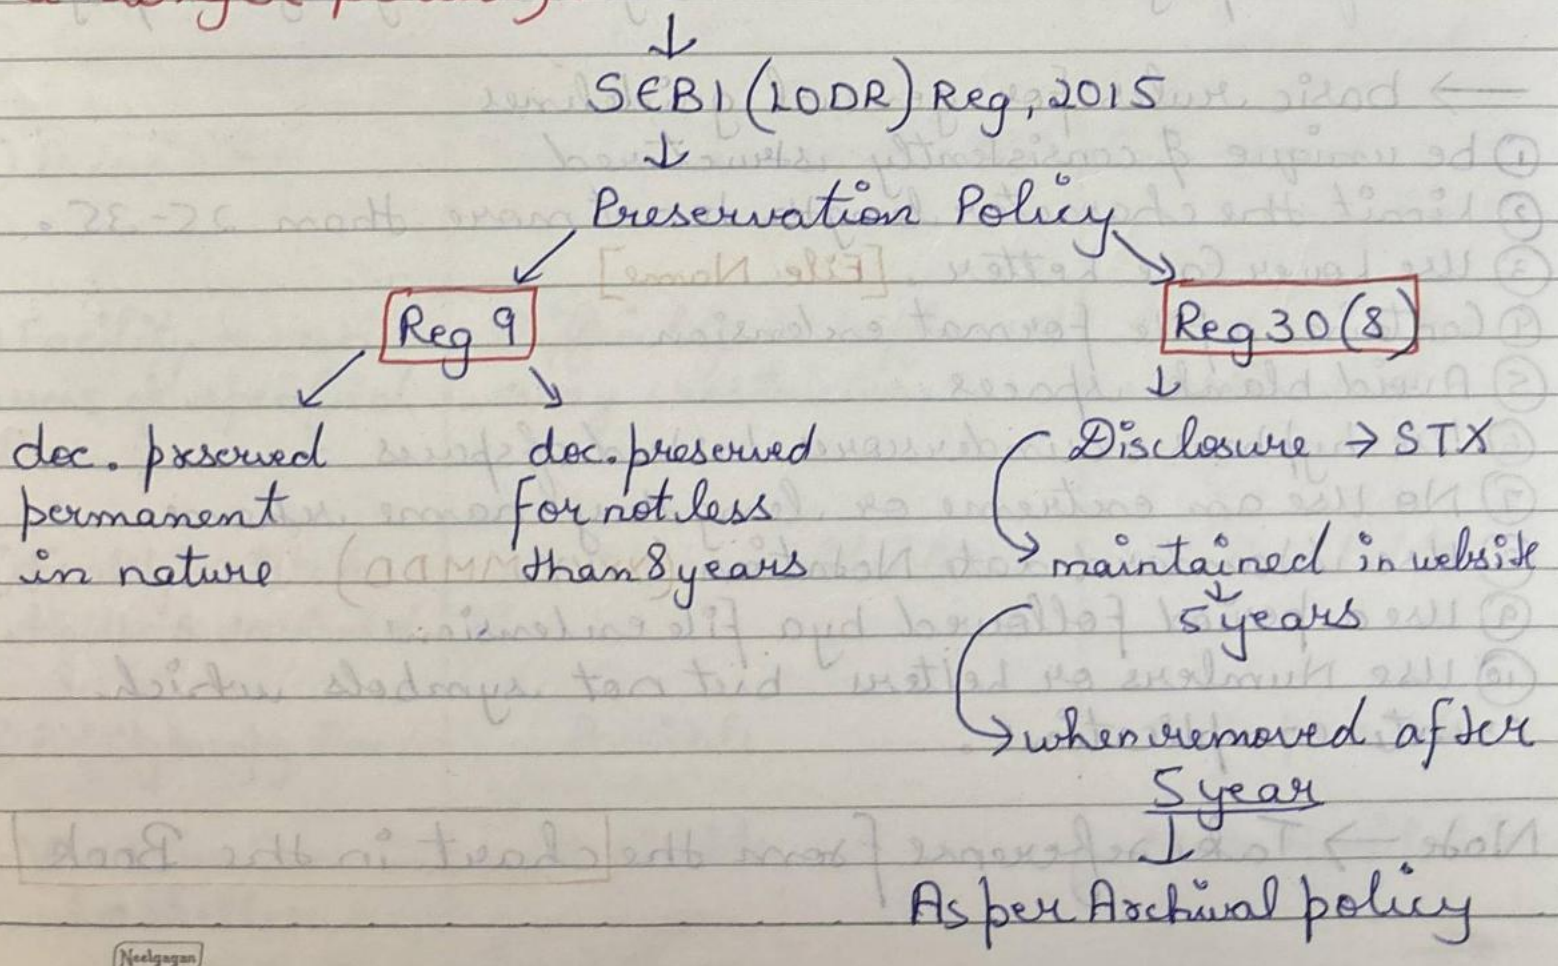 ↓
SEBI (LODR) Reg, 2015
↓
Preservation Policy
Reg 9
Reg 30(8)
doc. preserved
permanent
in nature
doc. preserved
for not less
than 8 years
Disclosure → STX
maintained in website
5 years
when removed after
5 year
↓
As per Archival policy
Neelgagan